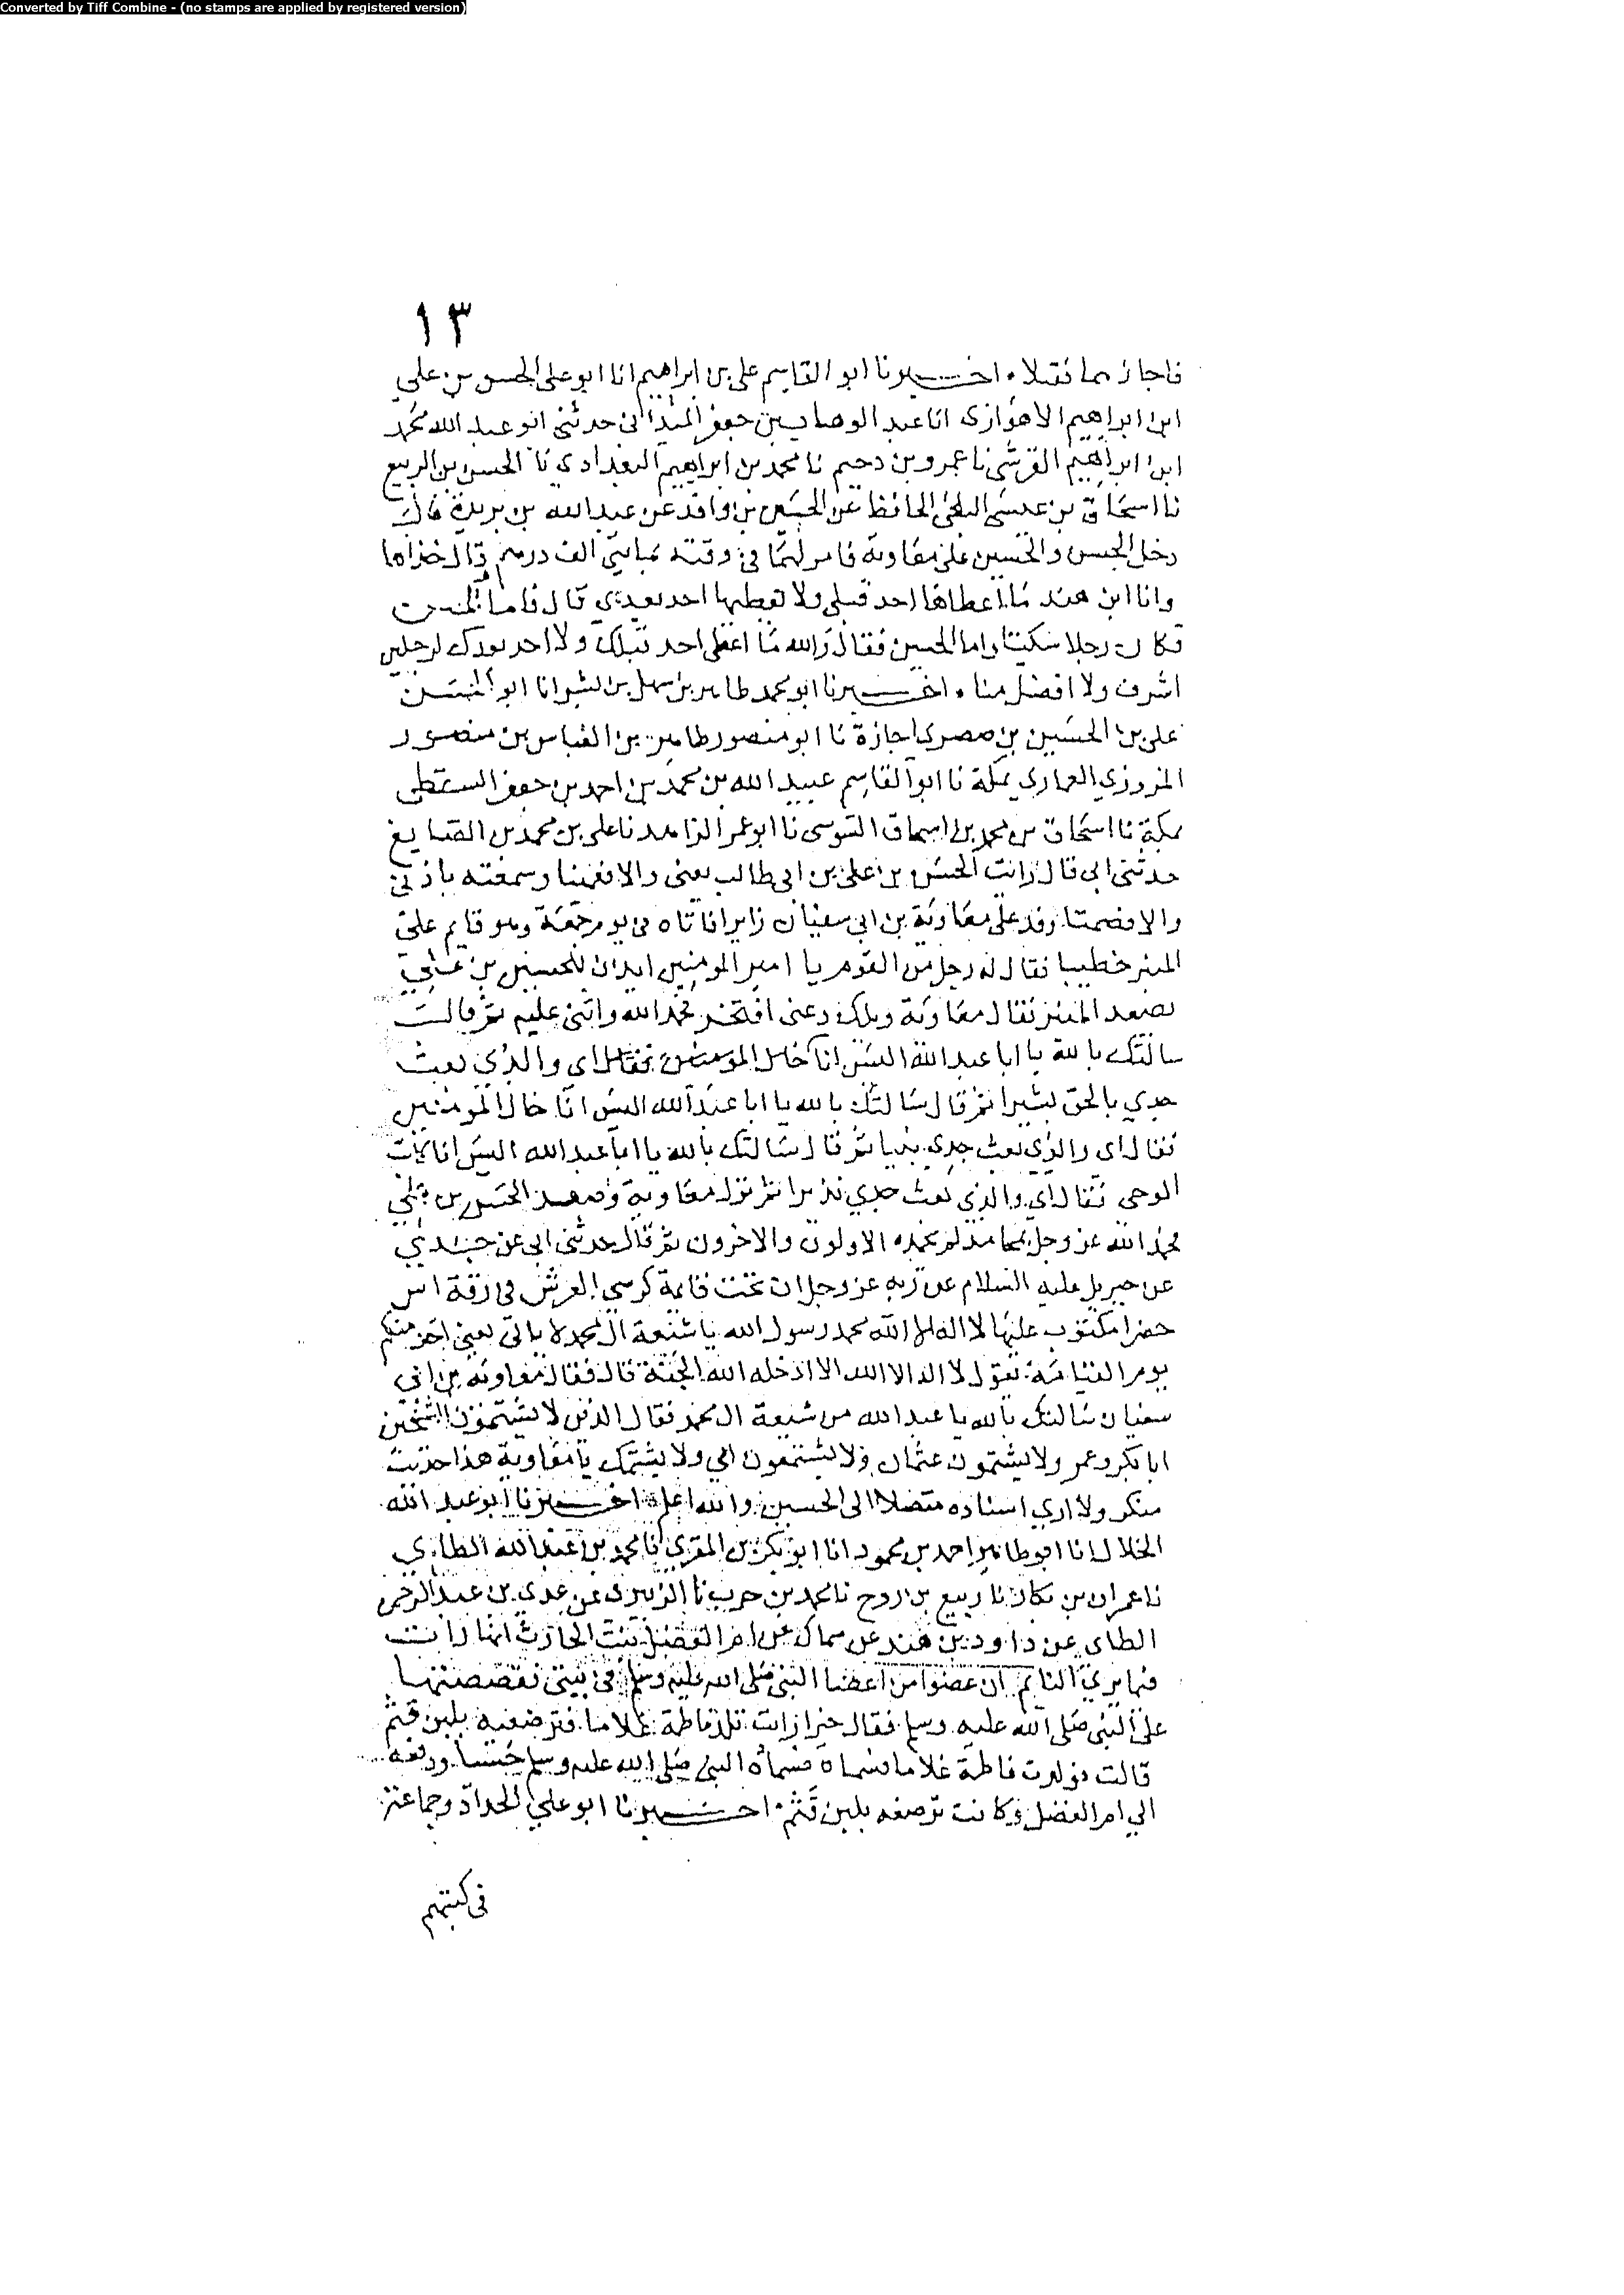 Converted by Tiff Combine - (no stamps are applied by registered version)
١٣
فاجازهما فقبلا اخبرنا ابو القاسم على بن ابراهيم انا ابو على الحسن بن علي
ابن ابراهيم الاهوازى انا عبد الوهاب بن جعفر الميدانى حدثنى ابو عبد الله محمد
ابن ابراهيم القرشى نا عمرو بن دحيم نا محمد بن ابراهيم البغدادي نا الحسن بن الربيع
نا اسحاق بن عيسى البلخى الحافظ عن الحسين بن واقد عن عبد الله بن بريدة قال
دخل الحسن والحسين على معاوية فامر لهما فى وقته بمايتى الف درهم قال خذاها
وانا ابن هند ما اعطاها احد قبلى ولا يعطيها احد بعدي قال فاما الحسن
فكان رجلا سكيتا واما الحسين فقال والله ما اعطى احد قبلك ولا احد بعدك لرجلين
اشرف ولا افضل منا اخبرنا ابو محمد طاهر بن سهل بن بشر انا ابو الحسن
على بن الحسين بن صصرى اجازة نا ابو منصور طاهر بن العباس بن منصور
المروزي العماري بمكة نا ابو القاسم عبيد الله بن محمد بن احمد بن جعفر السقطى
بمكة نا اسحاق بن محمد بن اسحاق السوسى نا ابو عمر الزاهد نا على بن محمد بن الصايغ
حدثنى ابى قال رايت الحسين بن على بن ابى طالب بعينى والا فعميتا وسمعته باذنى
والا فصمتا وفد على معاوية بن ابى سفيان زايرا فاتاه فى يوم جمعة وهو قايم على
المنبر خطيبا فقال له رجل من القوم يا امير المومنين ايذن للحسين بن على
يصعد المنبر فقال معاوية ويلك دعنى افتخر فحمد الله واثنى عليه ثم قال
سالتك بالله يا ابا عبد الله اليس انا خال المومنين فقال اى والذي بعث
جدي بالحق بشيرا ثم قال سالتك بالله يا ابا عبد الله اليس انا خال المومنين
فقال اى والذي بعث جدي نبيا ثم قال سالتك بالله يا ابا عبد الله اليس انا كاتب
الوحى فقال اي والذي بعث جدي نذيرا ثم نزل معاوية وصعد الحسين بن على
فحمد الله عز وجل بمحامد لم يحمده الاولون والاخرون ثم قال حدثنى ابى عن جدي
عن جبريل عليه السلام عن ربه عز وجل ان تحت قايمة كرسي العرش فى ورقة اس
خضرا مكتوب عليها لا اله الا الله محمد رسول الله يا شيعة ال محمد لا ياتى يعنى احد منكم
يوم القيامة يقول لا اله الا الله الا ادخله الله الجنة قال فقال معاوية بن ابى
سفيان سالتك بالله يا عبد الله من شيعة ال محمد فقال الذين لا يشتمون الشيخين
ابا بكر وعمر ولا يشتمون عثمان ولا يشتمون ابي ولا يشتمك يا معاوية هذا حديث
منكر ولا ارى اسناده متصلا الى الحسين والله اعلم اخبرنا ابو عبد الله
الخلال انا ابو طاهر احمد بن محمود انا ابو بكر بن المقري نا محمد بن عبد الله الطاي
نا عمران بن بكار نا ربيع بن روح نا محمد بن حرب نا الزبيدى عن عدى بن عبد الرحمن
الطاى عن داود بن هند عن سماك عن ام الفضل بنت الحارث انها رات
فيما يرى النايم ان عضوا من اعضا النبى صلى الله عليه وسلم فى بيتى فقصصتها
على النبى صلى الله عليه وسلم فقال خيرا رايت تلد فاطمة غلاما فترضعيه بلبن قثم
قالت فولدت فاطمة غلاما فسماه النبى صلى الله عليه وسلم حسينا ودفعه
الي ام الفضل وكانت ترضعه بلبن قثم اخبرنا ابو على الحداد وجماعة
فى كتبهم